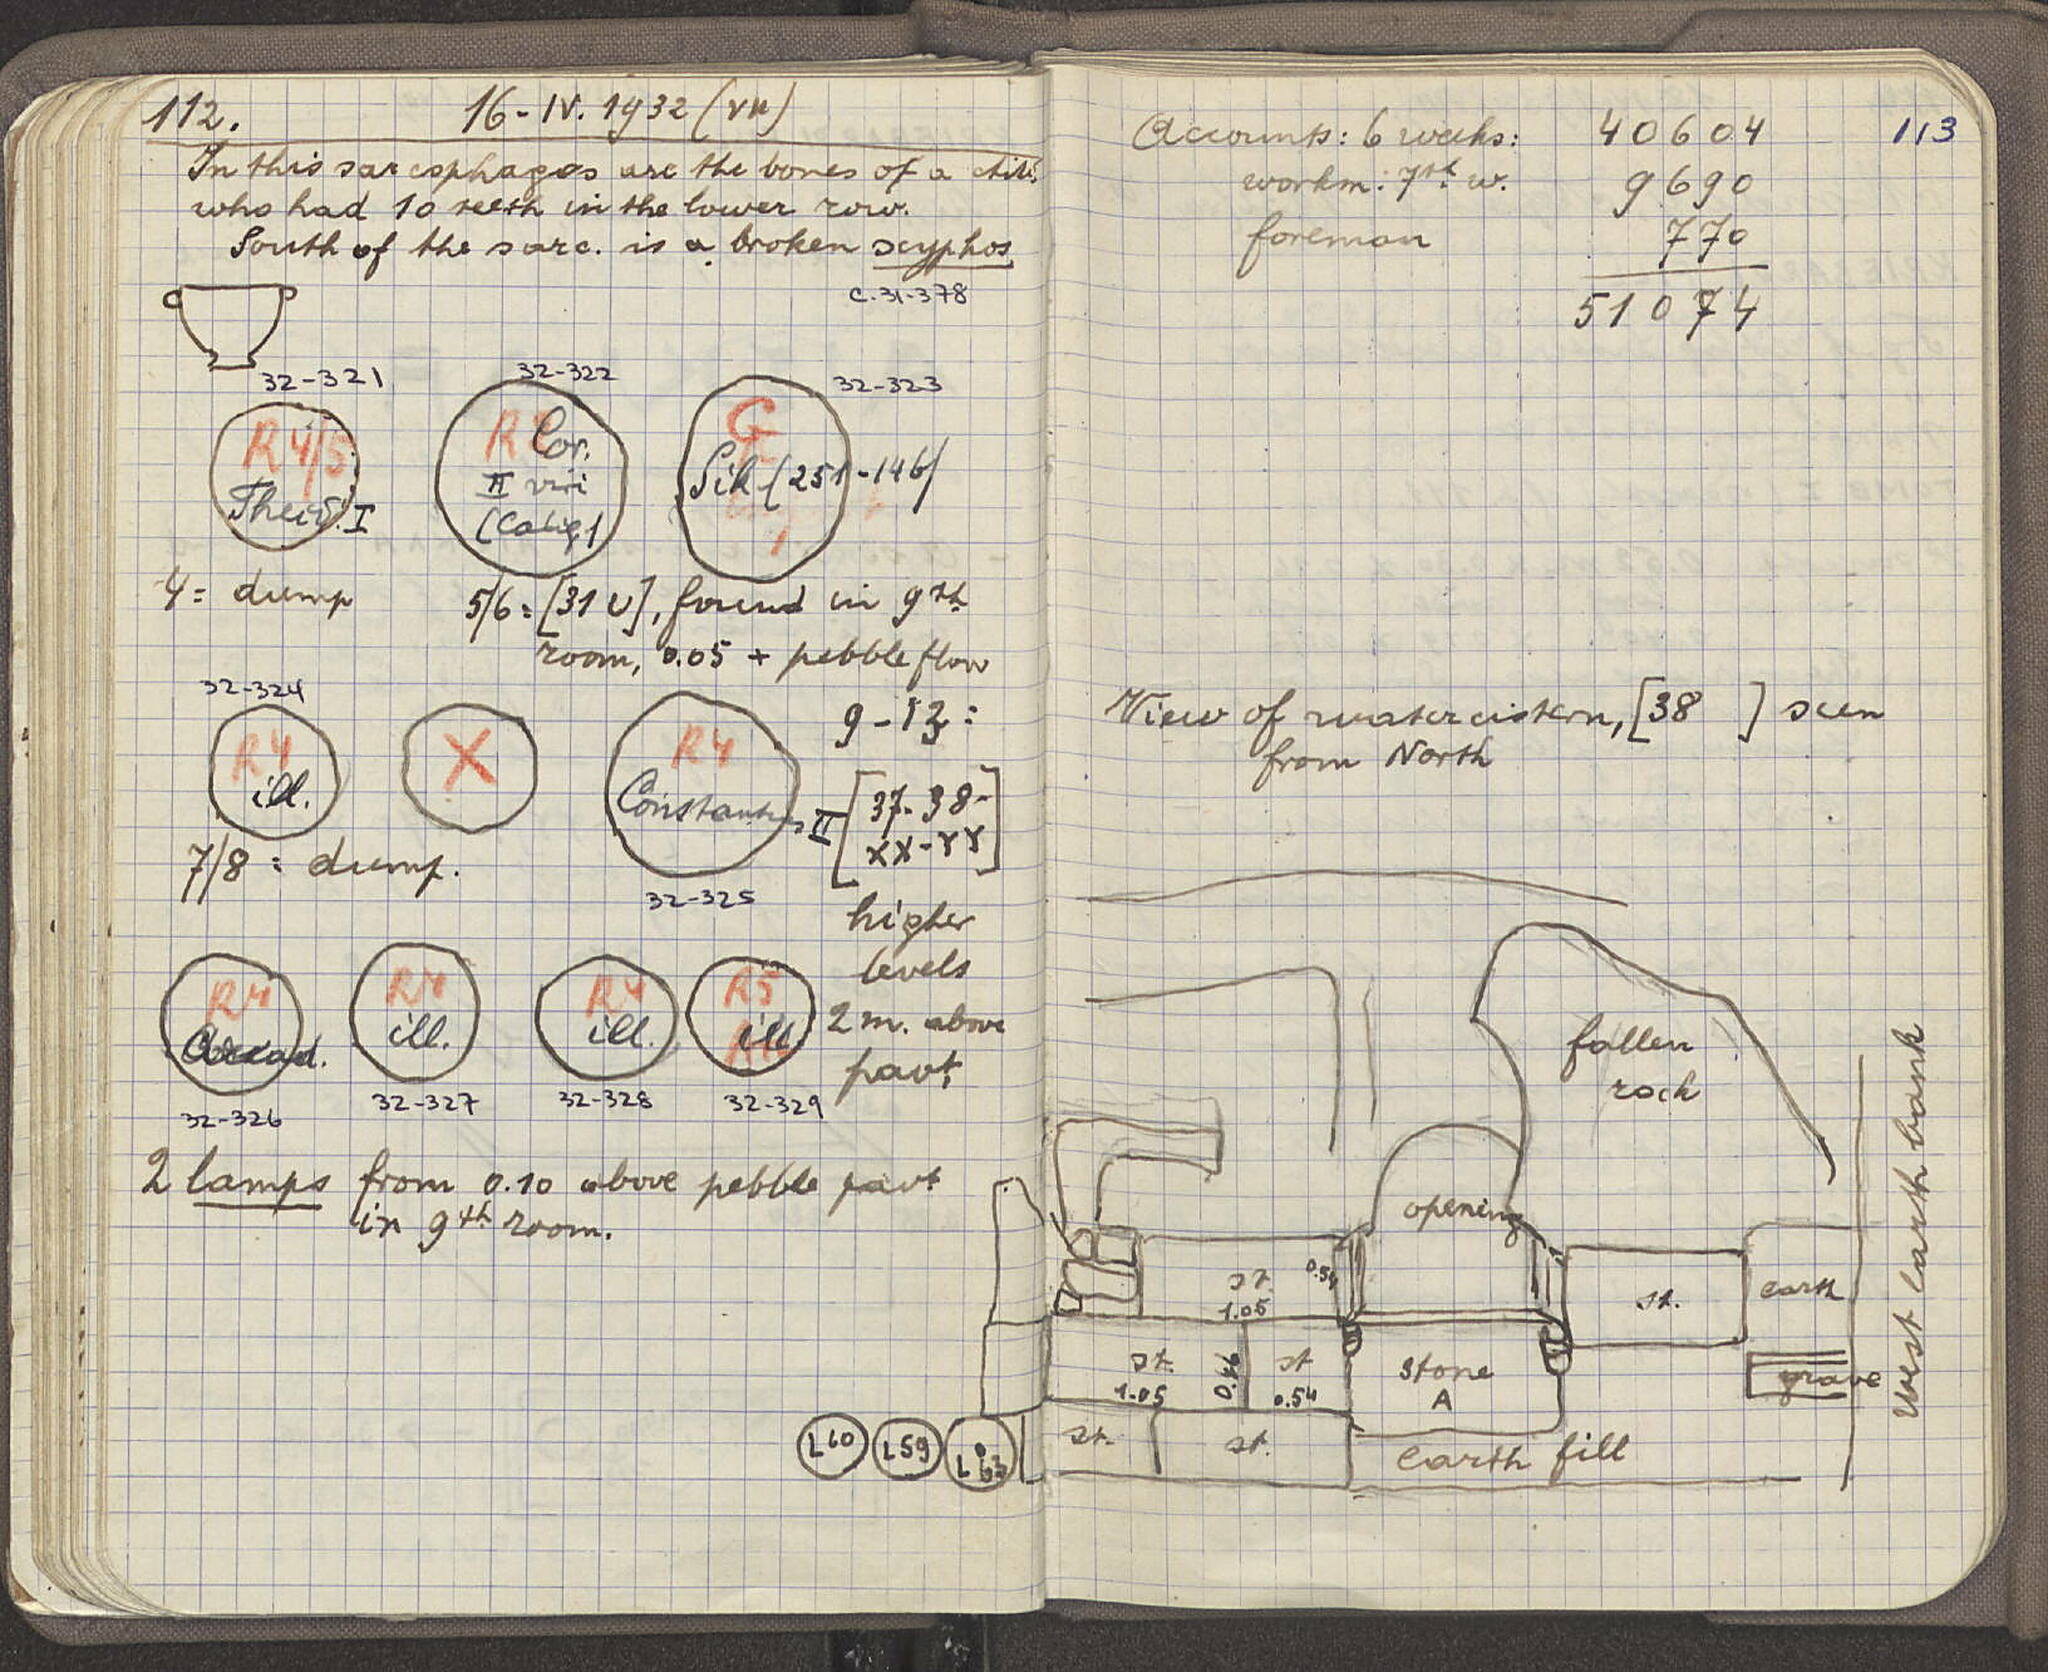 112.
16-IV.1932 (VII)
In this sarcophagos are the bones of a child
who had 10 teeth in the lower row.
South of the sarc. is a broken scyphos
C.31-378
32-321
32-322
32-323
R 4/5
Theod. I
R
Cor.
II viri
(Calig)
G
Sik (251-146)
4 = dump
5/6 = [31 U], found in 9th
room, 0.05 + pebble floor
32-324
R4
ill.
X
R4
Constantius II
32-325
7/8 = dump.
9-13:
[37-38-
XX-YY]
higher
levels
2 m. above
pavt.
R4
Arcad.
32-326
R4
ill.
32-327
R4
ill.
32-328
R5
ill.
32-329
2 lamps from 0.10 above pebble pavt
in 9th room.
L60
L59
L
113
Accounts: 6 weeks: 40604
workm: 7th w. 9690
foreman 770
51074
View of watercistern, [38 ] seen
from North
fallen
rock
opening
west earth bank
st.
1.05
0.54
st.
earth
st.
1.05
0.46
st
0.54
stone
A
grave
st.
st.
earth fill